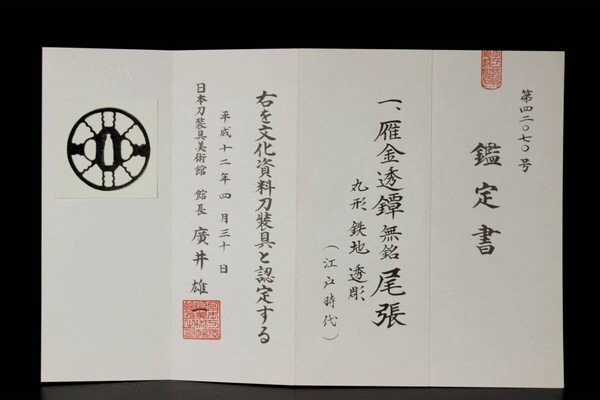 第四二〇七〇号
鑑定書
一、雁金透鐔 無銘 尾張
丸形 鉄地 透彫
（江戸時代）
右を文化資料刀装具と認定する
平成十二年四月三十日
日本刀装具美術館 館長 廣井雄一